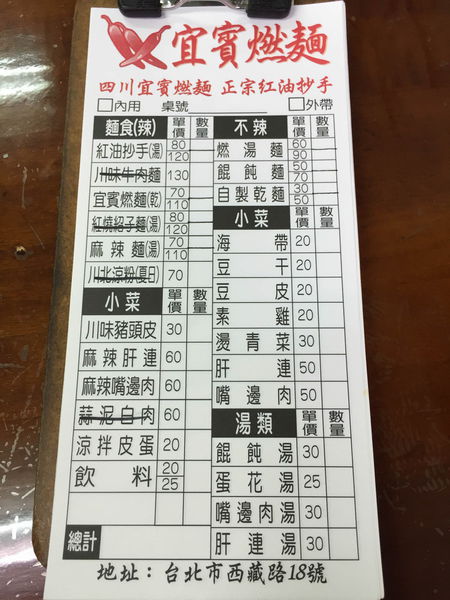 宜賓燃麵
四川宜賓燃麵 正宗紅油抄手
內用 桌號 外帶
麵食(辣) 單價 數量
紅油抄手(湯) 80 120
川味牛肉麵 130
宜賓燃麵(乾) 70 110
紅燒紹子麵(湯) 80 120
麻辣麵(湯) 70 110
川北涼粉(夏日) 70
小菜 單價 數量
川味豬頭皮 30
麻辣肝連 60
麻辣嘴邊肉 60
蒜泥白肉 60
涼拌皮蛋 20
飲料 20 25
總計
不辣 單價 數量
燃湯麵 60 90
餛飩麵 50 70
自製乾麵 30 50
小菜 單價 數量
海帶 20
豆干 20
豆皮 20
素雞 20
燙青菜 30
肝連 50
嘴邊肉 50
湯類 單價 數量
餛飩湯 30
蛋花湯 25
嘴邊肉湯 30
肝連湯 30
地址：台北市西藏路18號